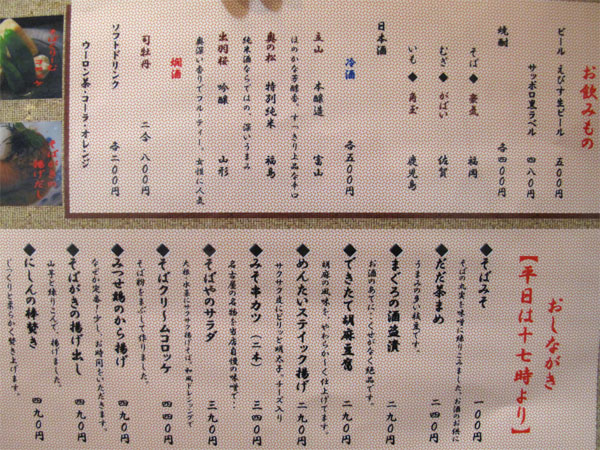 お飲みもの
ビール えびす生ビール 五〇〇円
サッポロ黒ラベル 四八〇円
焼酎 各四〇〇円
そば◆雲気 福岡
むぎ◆がばい 佐賀
いも◆角玉 鹿児島
日本酒
冷酒 各五〇〇円
立山 本醸造 富山
ほのかな芳醇香、すっきり上品な辛口
奥の松 特別純米 福島
純米酒ならではの、深いうまみ
出羽桜 吟醸 山形
奥深い香りでフルーティー。女性に人気
燗酒
司牡丹 二合 八〇〇円
ソフトドリンク 各二〇〇円
ウーロン茶・コーラ・オレンジ
おしながき
【平日は十七時より】
◆そばみそ 一〇〇円
そばの丸実を味噌に練りこみました。お酒のお供に
◆だだ茶まめ 二四〇円
うまみの多い枝豆です。
◆まぐろの酒盗漬 二九〇円
お酒のあてに・くせがなく絶品です。
◆できたて胡麻豆腐 二九〇円
胡麻の風味を、やわらかーく仕上げてます。
◆めんたいスティック揚げ 二九〇円
サクサク皮にピリッと明太子。チーズ入り
◆みそ串カツ（二本） 三四〇円
名古屋の名物を当店自慢の味噌で・・
◆そばやのサラダ 三九〇円
大根・水菜にサクサク揚げそば。和風ドレッシングで
◆そばクリームコロッケ 四四〇円
そば粉をまぶして作りました。
◆みつせ鶏のから揚げ 四九〇円
なぜか定番！少し、お時間をいただきます。
◆そばがきの揚げ出し 四九〇円
山芋と練りこんで、揚げました。
◆にしんの棒煮き 四九〇円
じっくりと柔らかく煮き上げます。
コロッケ
そばがきの
揚げだし